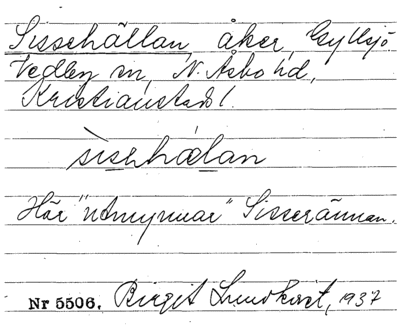 Sissehällan, åker, Gyllsjö
Vedby sn, N. Åsbo hd,
Kristianstads l.
sissehälan
Här "utmynnar" Sisserännan.
Nr 5506. Birgit Lundkvist, 1937